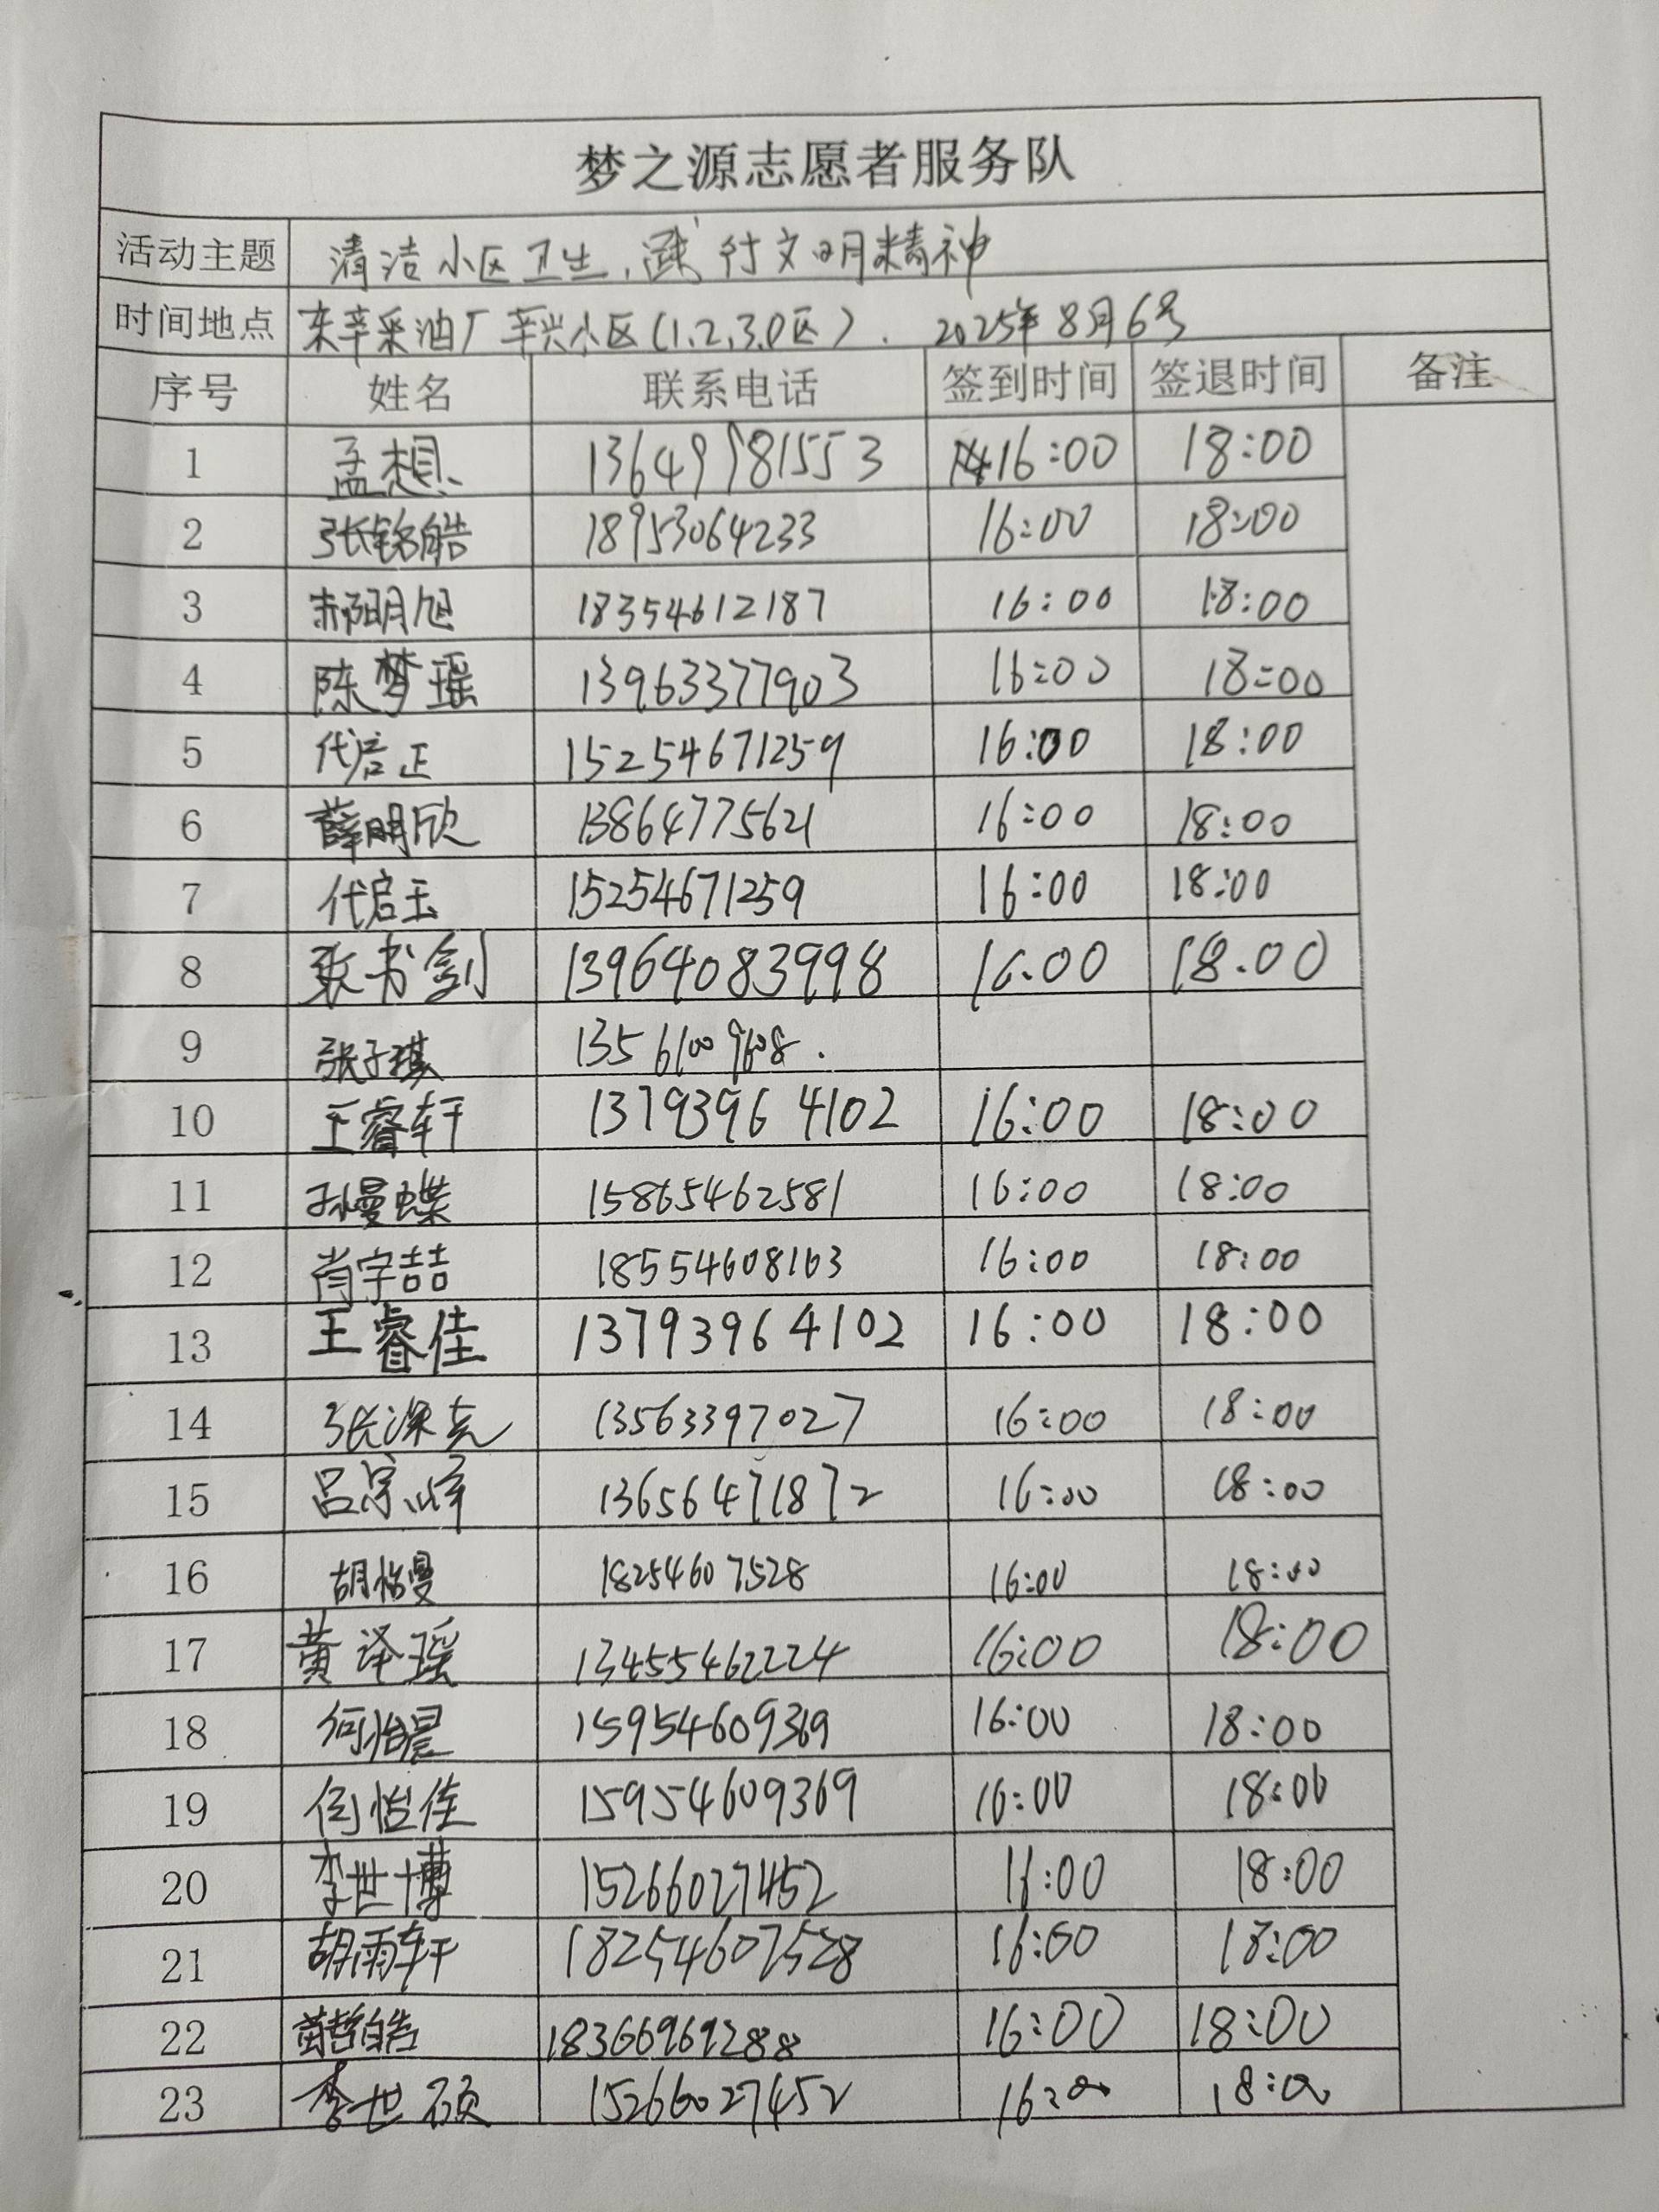 梦之源志愿者服务队
活动主题 清洁小区卫生,践行文明精神
时间地点 东辛采油厂辛兴小区(1.2.3.0区). 2025年8月6号
序号 姓名 联系电话 签到时间 签退时间 备注
1 孟想 13649981553 16:00 18:00
2 张铭皓 18953064233 16:00 18:00
3 18354612187 16:00 18:00
4 陈梦瑶 13963377903 16:00 18:00
5 代启正 15254671259 16:00 18:00
6 薛明欣 13864775621 16:00 18:00
7 代启玉 15254671259 16:00 18:00
8 张书剑 13964083998 16:00 18.00
9 张子琪 13561009608.
10 王睿轩 13793964102 16:00 18:00
11 孙曼蝶 15865462581 16:00 18:00
12 肖宇喆 18554608163 16:00 18:00
13 王睿佳 13793964102 16:00 18:00
14 13563397027 16:00 18:00
15 吕宗峰 13656471872 16:00 18:00
16 胡怡曼 18254607528 16:00 18:00
17 黄泽瑶 13455462224 16:00 18:00
18 何怡晨 15954609369 16:00 18:00
19 何怡佳 15954609369 16:00 18:00
20 李世博 15266027452 16:00 18:00
21 胡雨轩 18254607528 16:00 18:00
22 18366969288 16:00 18:00
23 李世硕 15266027452 16:00 18:00